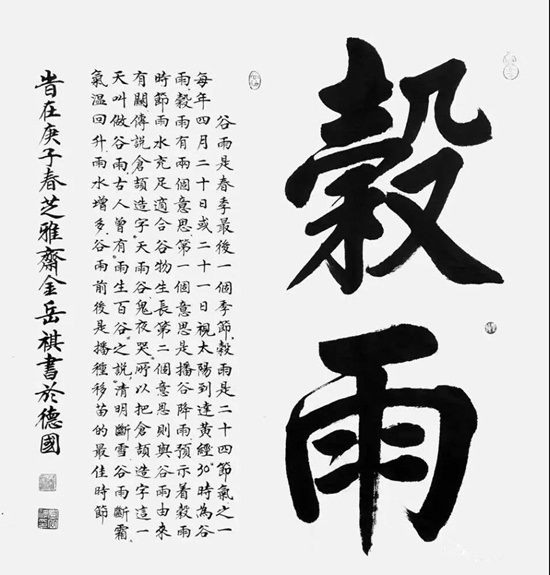 穀雨
谷雨是春季最後一個季節,穀雨是二十四節氣之一
每年四月二十日或二十一日視太陽到達黃經30°時為谷
雨,穀雨有兩個意思,第一個意思是播谷降雨,預示着穀雨
時節雨水充足適合谷物生長,第二個意思則與谷雨由來
有關,傳説倉頡造字,"天雨谷鬼夜哭"所以把倉頡造字這一
天叫做谷雨,古人曾有"雨生百谷"之説,"清明斷雪谷雨斷霜"
氣溫回升,雨水增多,谷雨前後是播種移苗的最佳時節
旹在庚子春芝雅齋金岳祺書於德國